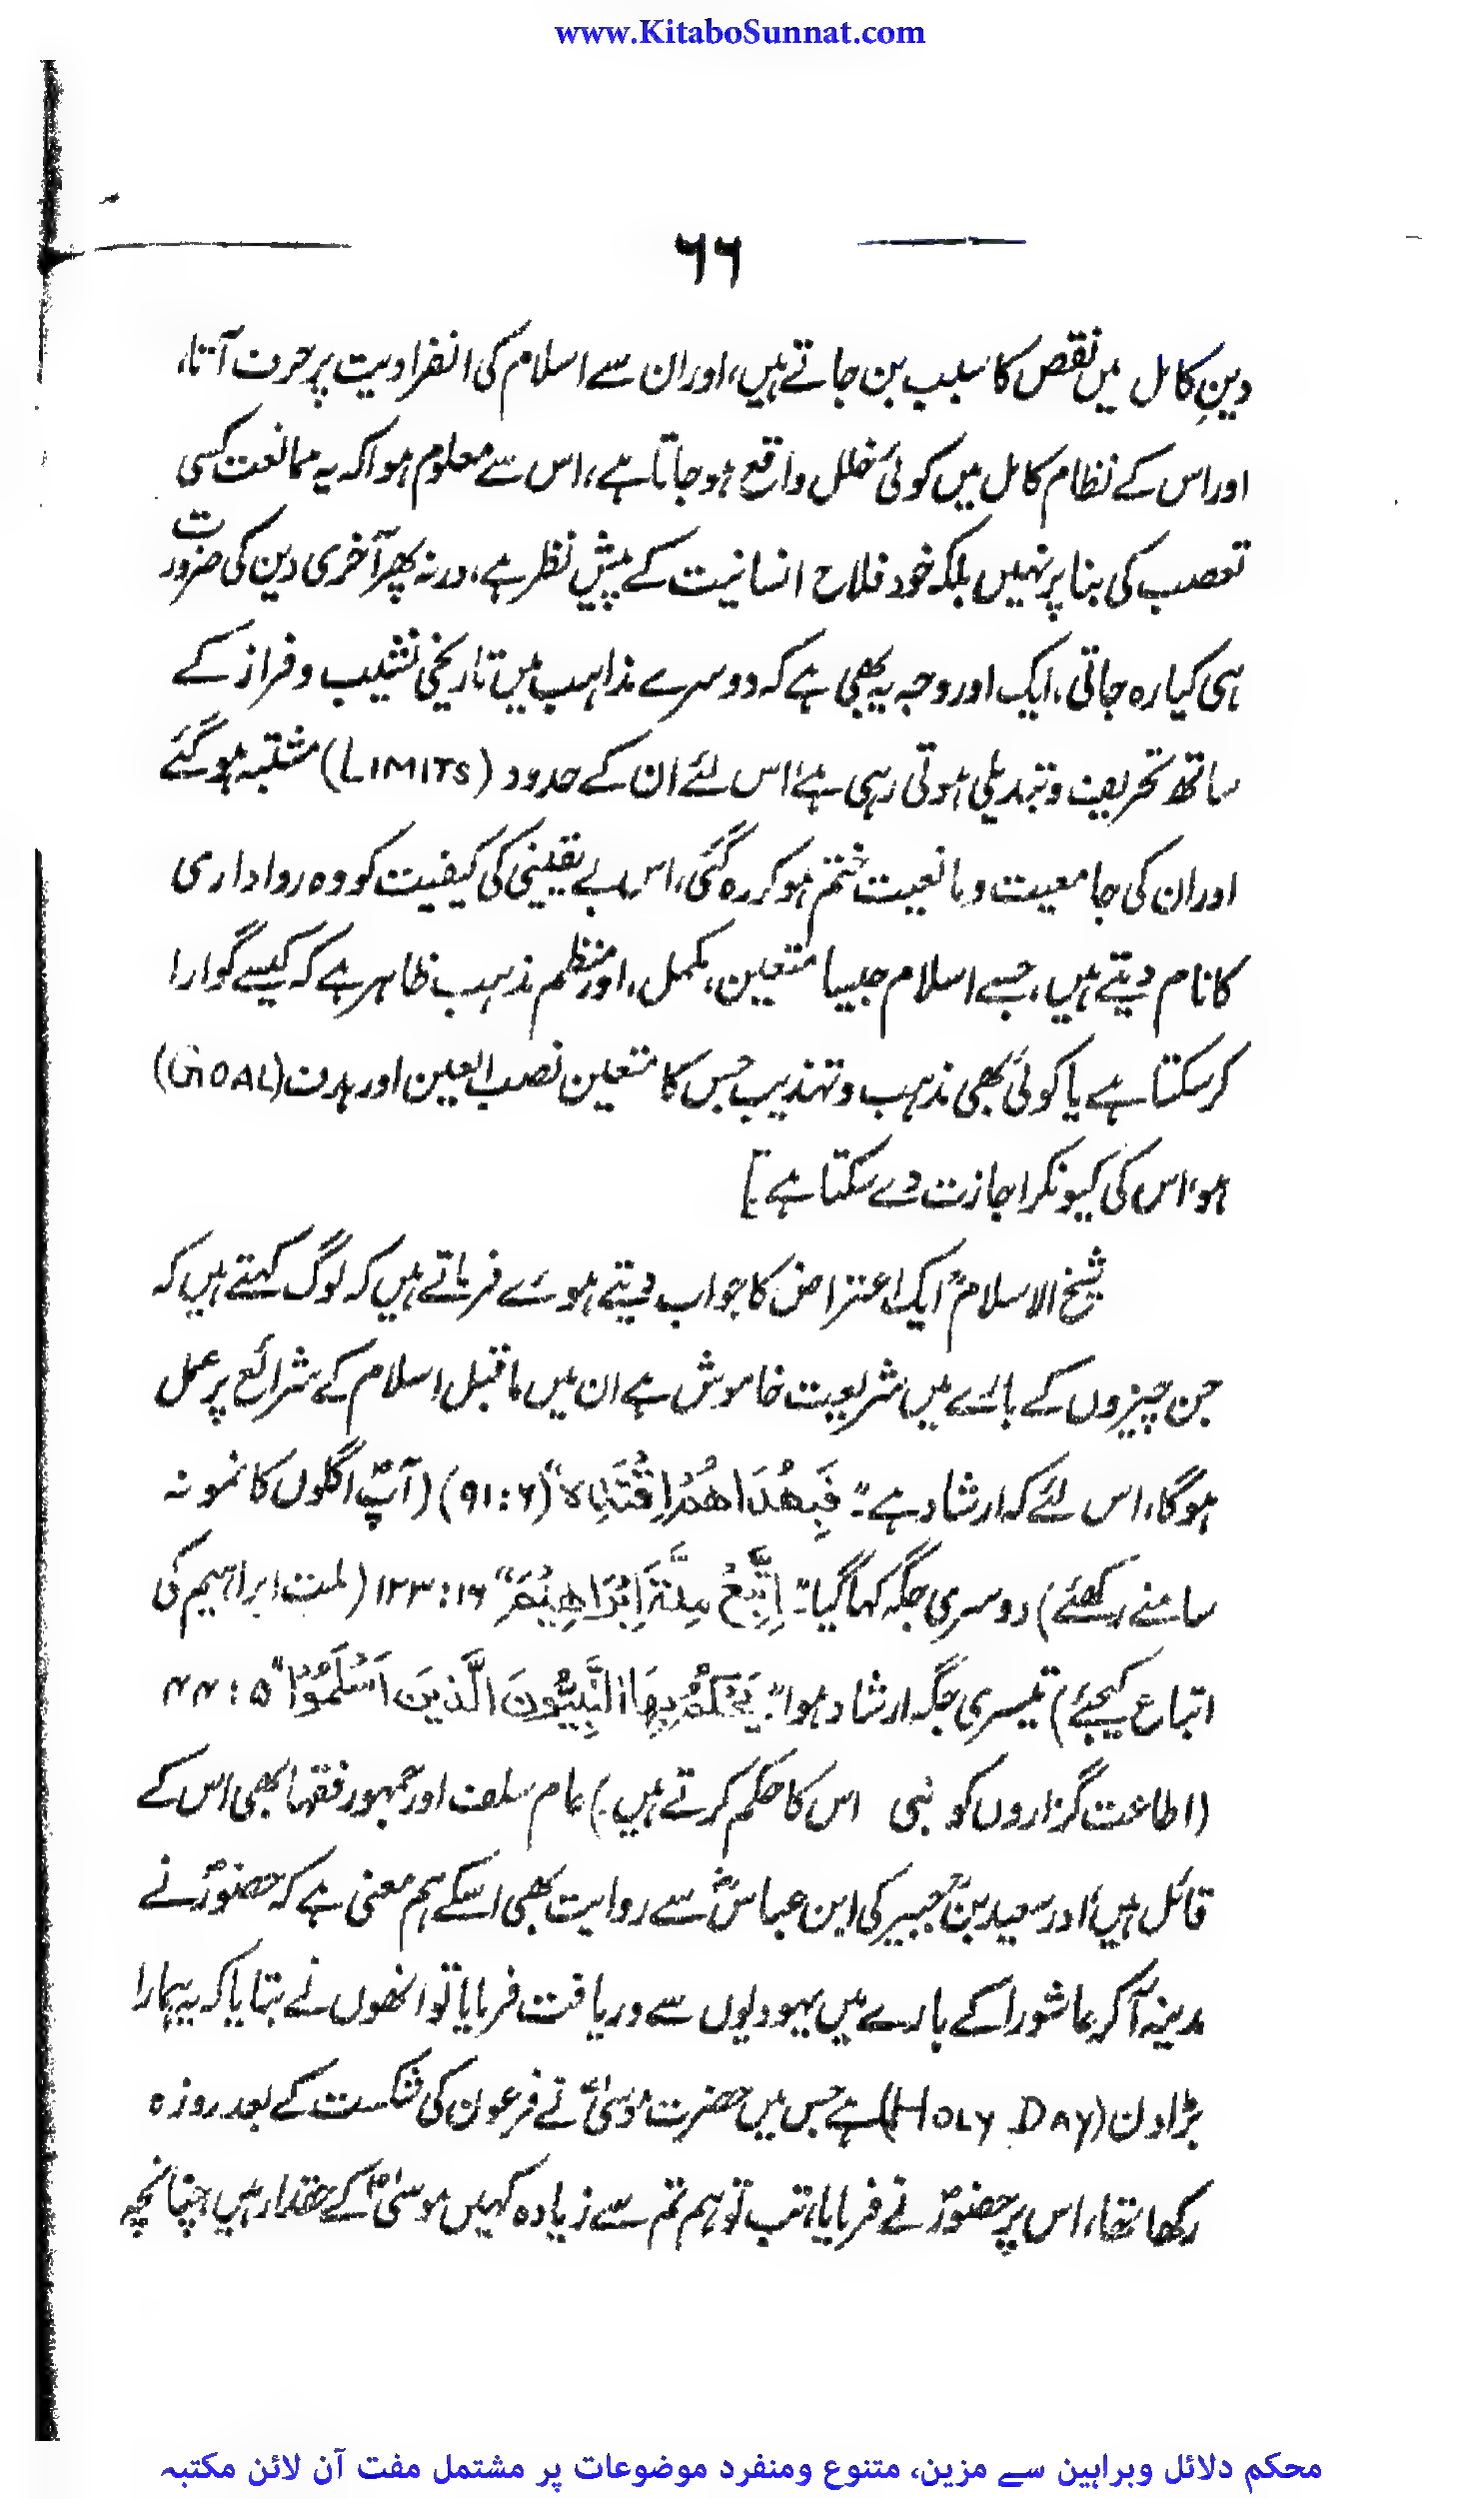 www.KitaboSunnat.com
۶۶
دینِ کامل میں نقص کا سبب بن جاتے ہیں، اور ان سے اسلام کی انفرادیت پر حرف آتا،
اور اس کے نظام کامل میں کوئی خلل واقع ہو جاتا ہے، اس سے معلوم ہوا کہ یہ ممانعت کسی
تعصب کی بنا پر نہیں بلکہ خود فلاح انسانیت کے پیش نظر ہے، ورنہ پھر آخری دین کی ضرورت
ہی کیا رہ جاتی، ایک اور وجہ یہ بھی ہے کہ دوسرے مذاہب میں تاریخی نشیب و فراز کے
ساتھ تحریف و تبدیلی ہوتی رہی ہے، اس لئے ان کے حدود (LIMITS) مشتبہ ہو گئے
اور ان کی جامعیت و مانعیت ختم ہو کر رہ گئی، اس بے یقینی کی کیفیت کو وہ رواداری
کا نام دیتے ہیں، جسے اسلام جیسا متعین، مکمل، اور منظم مذہب ظاہر ہے کہ کیسے گوارا
کر سکتا ہے یا کوئی بھی مذہب و تہذیب جس کا متعین نصب العین اور ہدف (GOAL)
ہو، اس کی کیونکر اجازت دے سکتا ہے]
شیخ الاسلامؒ ایک اعتراض کا جواب دیتے ہوئے فرماتے ہیں کہ لوگ کہتے ہیں کہ
جن چیزوں کے بارے میں شریعت خاموش ہے ان میں ماقبل اسلام کے شرائع پر عمل
ہو گا، اس لئے کہ ارشاد ہے: "فَبِهُدَاهُمُ اقْتَدِہْ" (۶:۹۱) (آپؐ اگلوں کا نمونہ
سامنے رکھئے) دوسری جگہ کہا گیا: "اِتَّبِعْ مِلَّةَ اِبْرَاهِيْمَ" ۱۶:۱۲۳ (ملت ابراہیم کی
اتباع کیجئے) تیسری جگہ ارشاد ہوا: "يَحْكُمُ بِهَا النَّبِيُّونَ الَّذِينَ اَسْلَمُوْا" ۵:۴۴
(اطاعت گزاروں کو نبی اس کا حکم کرتے ہیں) عام سلف اور جمہور فقہا بھی اس کے
قائل ہیں، اور سعید بن جبیر کی ابن عباسؓ سے روایت بھی اسکے ہم معنی ہے کہ حضورؐ نے
مدینہ آکر عاشورا کے بارے میں یہودیوں سے دریافت فرمایا تو انھوں نے بتایا کہ یہ ہمارا
بڑا دن (HOLY DAY) ہے جس میں حضرت موسیٰؑ نے فرعون کی شکست کے بعد روزہ
رکھا تھا، اس پر حضورؐ نے فرمایا، تب تو ہم تم سے زیادہ کہیں موسیٰؑ کے حقدار ہیں، چنانچہ
محکم دلائل وبراہین سے مزین، متنوع ومنفرد موضوعات پر مشتمل مفت آن لائن مکتبہ